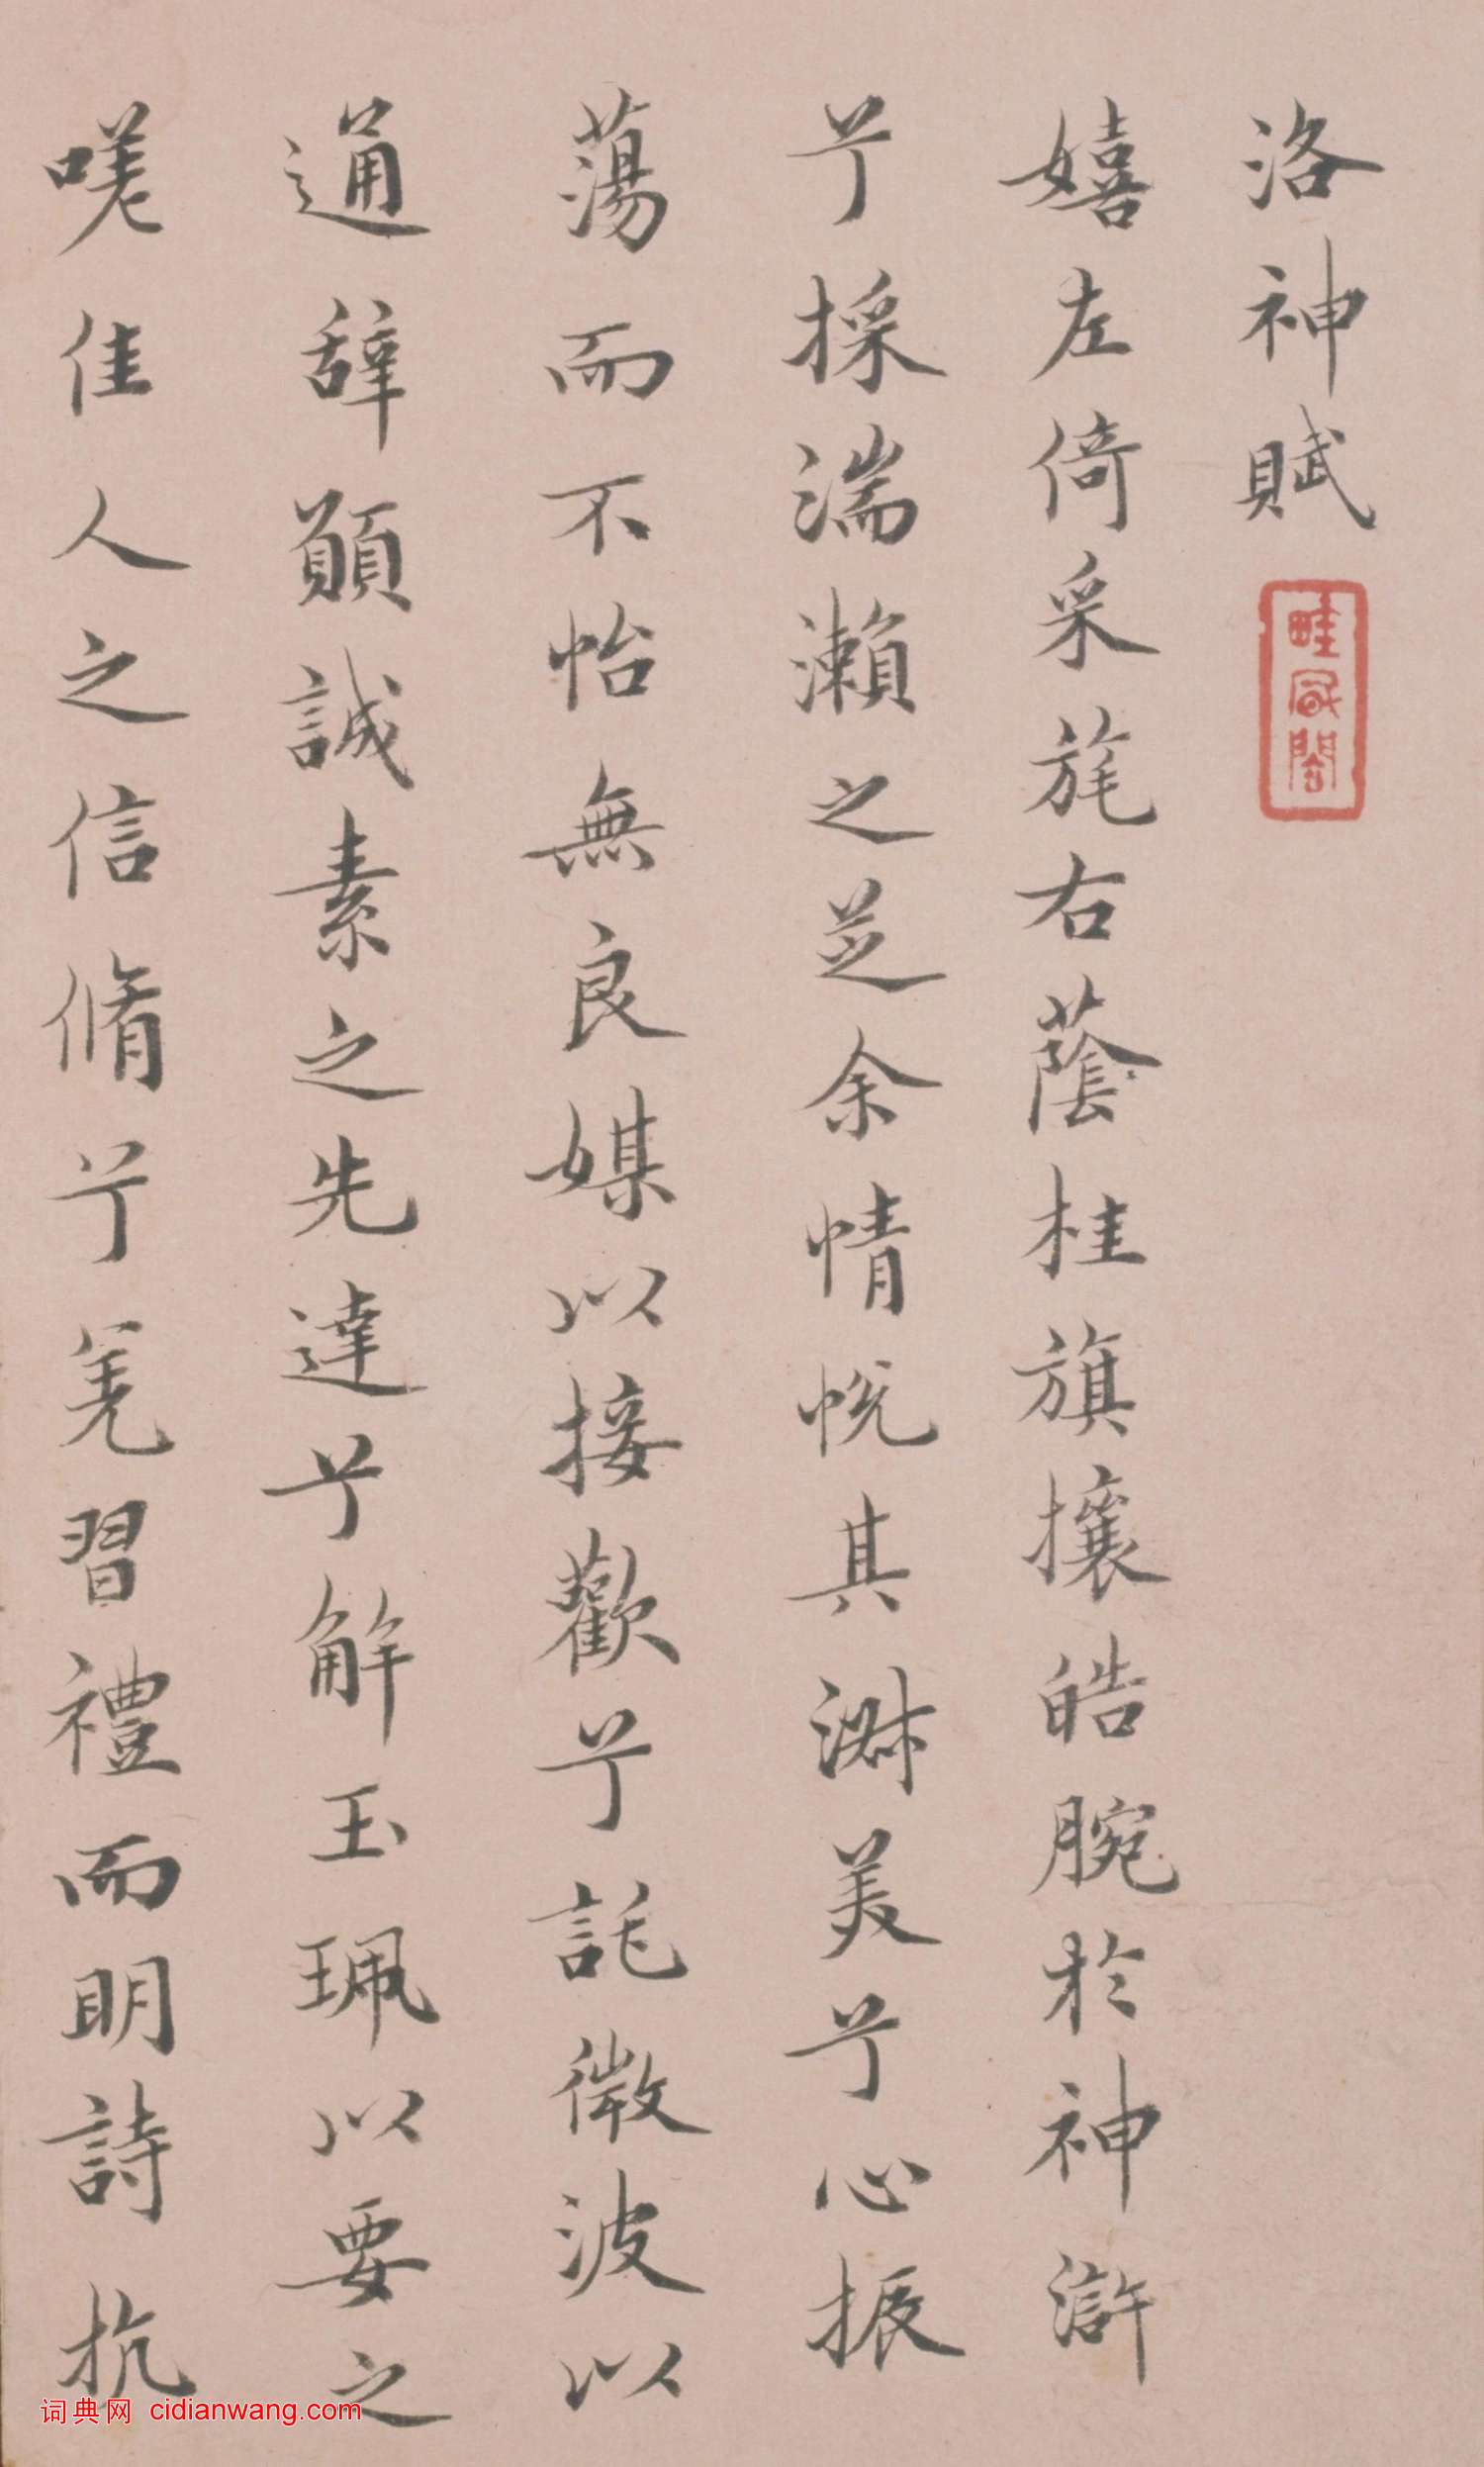 洛神賦
嬉左倚采旄右蔭桂旗攘皓腕於神滸
兮採湍瀨之芝余情悅其淑美兮心振
蕩而不怡無良媒以接歡兮託微波以
通辭願誠素之先達兮解玉珮以要之
嗟佳人之信脩兮羌習禮而明詩抗
词典网 cidianwang.com